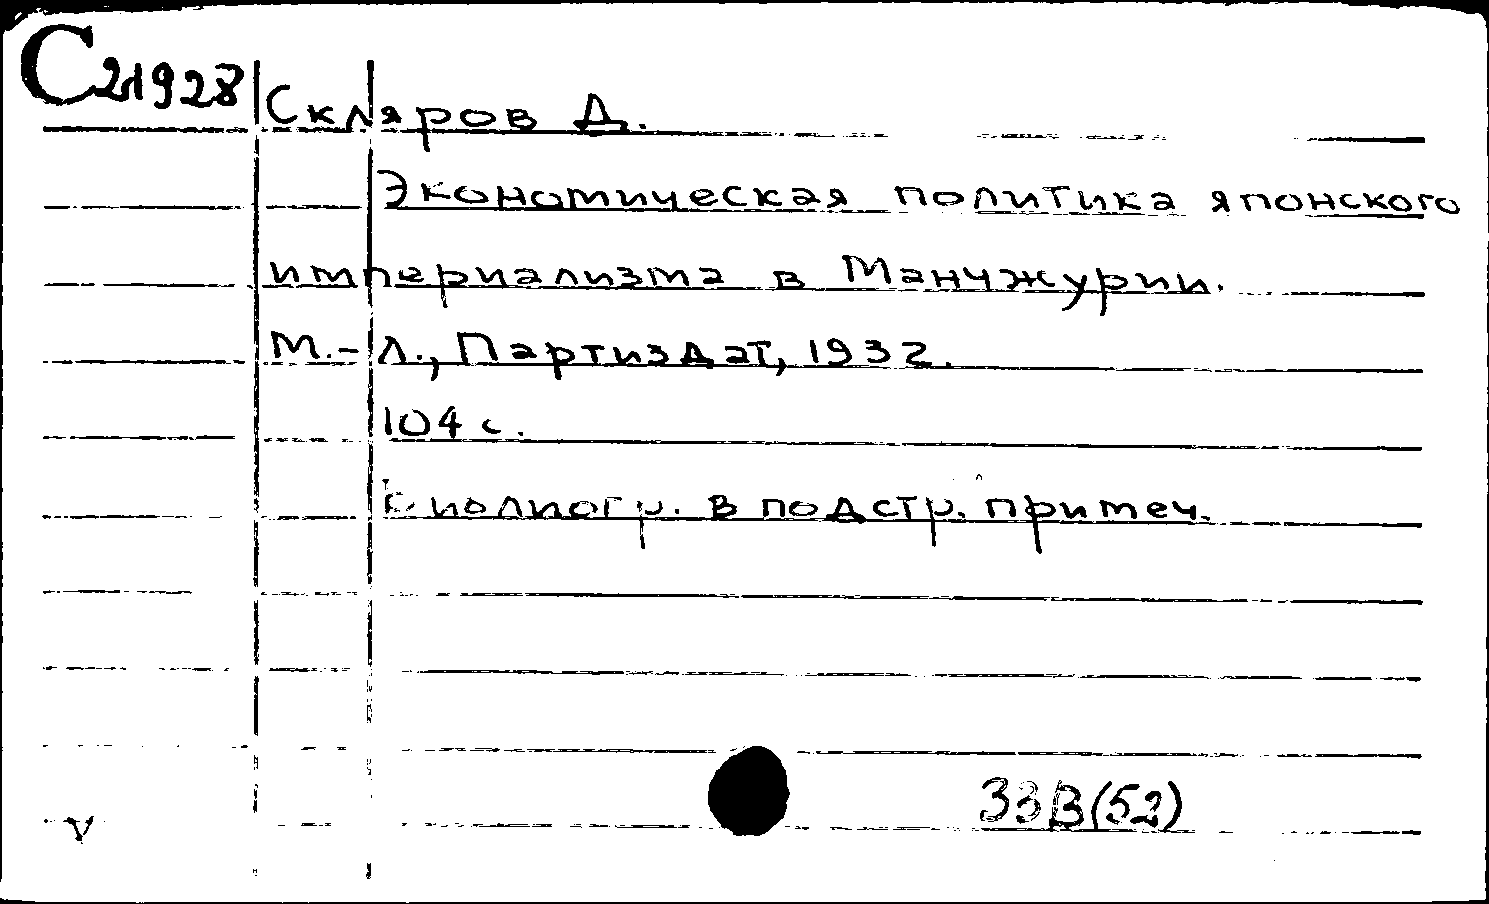 С21928 Скляров Д.
Экономическая политика японского
империализма в Манчжурии.
М.-Л., Партиздат, 1932.
104 с.
Библиогр. в подстр. примеч.
33В(52)
V